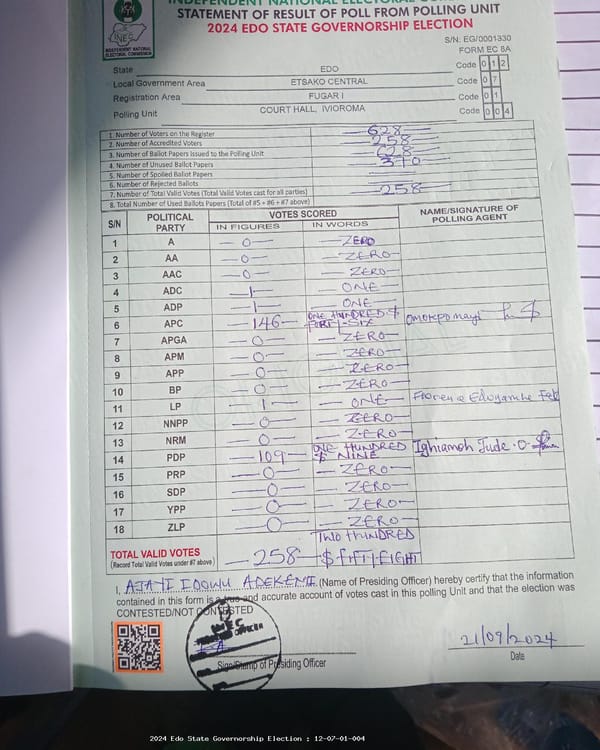 INEC
INDEPENDENT NATIONAL ELECTORAL COMMISSION
STATEMENT OF RESULT OF POLL FROM POLLING UNIT
2024 EDO STATE GOVERNORSHIP ELECTION
S/N: EG/0001330
FORM EC 8A
State EDO Code 0 1 2
Local Government Area ETSAKO CENTRAL Code 0 7
Registration Area FUGAR I Code 0 1
Polling Unit COURT HALL, IVIOROMA Code 0 0 4
1. Number of Voters on the Register 628
2. Number of Accredited Voters 258
3. Number of Ballot Papers Issued to the Polling Unit 628
4. Number of Unused Ballot Papers 370
5. Number of Spoiled Ballot Papers
6. Number of Rejected Ballots
7. Number of Total Valid Votes (Total Valid Votes cast for all parties) 258
8. Total Number of Used Ballots Papers (Total of #5 + #6 + #7 above)
S/N POLITICAL PARTY VOTES SCORED NAME/SIGNATURE OF POLLING AGENT
IN FIGURES IN WORDS
1 A 0 ZERO
2 AA 0 ZERO
3 AAC 0 ZERO
4 ADC 1 ONE
5 ADP 1 ONE
6 APC 146 ONE HUNDRED & FORTY-SIX
7 APGA 0 ZERO
8 APM 0 ZERO
9 APP 0 ZERO
10 BP 0 ZERO
11 LP 1 ONE
12 NNPP 0 ZERO
13 NRM 0 ZERO
14 PDP 109 ONE HUNDRED & NINE Ighiamoh Jude .O.
15 PRP 0 ZERO
16 SDP 0 ZERO
17 YPP 0 ZERO
18 ZLP 0 ZERO
TOTAL VALID VOTES 258 TWO HUNDRED & FIFTY EIGHT
(Record Total Valid Votes under #7 above)
I, AJAYI IDOWU ADEKEMI (Name of Presiding Officer) hereby certify that the information
contained in this form is a true and accurate account of votes cast in this polling Unit and that the election was
CONTESTED/NOT CONTESTED
INEC
OFFICER
Sign/Stamp of Presiding Officer
21/09/2024
Date
2024 Edo State Governorship Election : 12-07-01-004